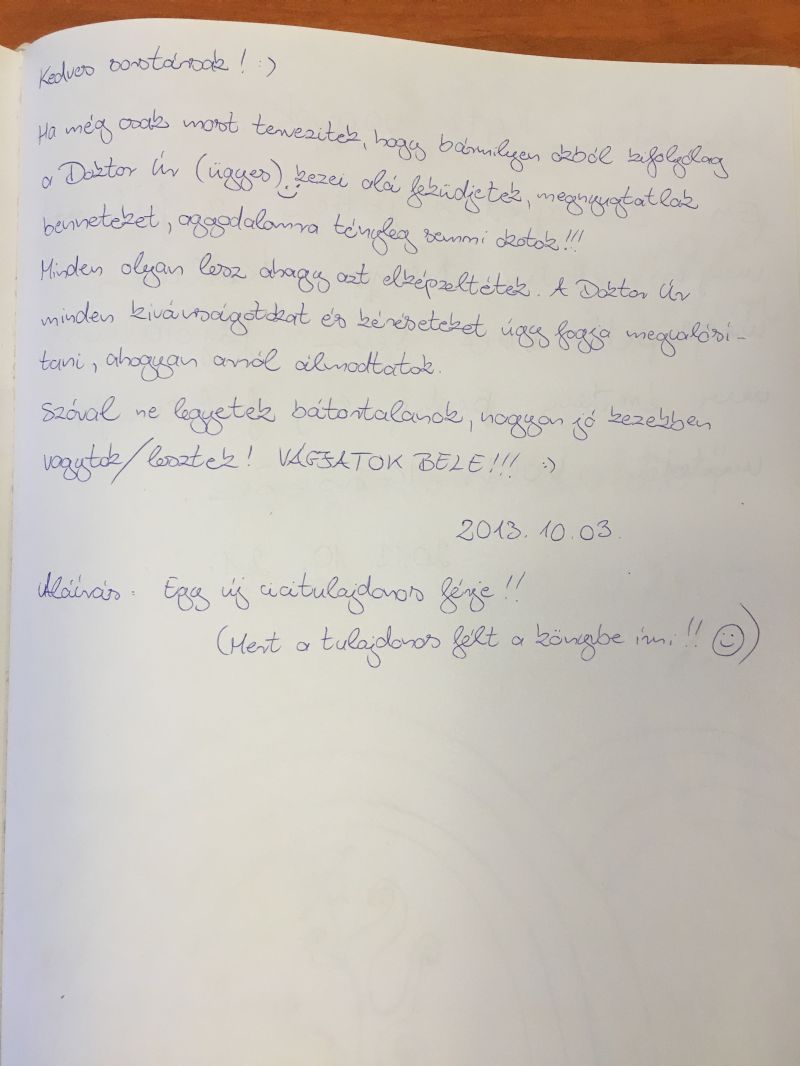 Kedves sorstársak! :)
Ha még csak most tervezitek, hogy bármilyen okból kifolyólag
a Doktor Úr (ügyes) kezei alá feküdjetek, megnyugtatlak
benneteket, aggodalomra tényleg semmi okotok!!!
Minden olyan lesz ahogy azt elképzeltétek. A Doktor Úr
minden kívánságotokat és kéréseteket úgy fogja megvalósí-
tani, ahogyan arról álmodtatok.
Szóval ne legyetek bátortalanok, nagyon jó kezekben
vagytok/lesztek! VÁGJATOK BELE!!! :)
2013. 10. 03.
Aláírás: Egy új cicitulajdonos férje!!
(Mert a tulajdonos félt a könyvbe írni!! ☺)